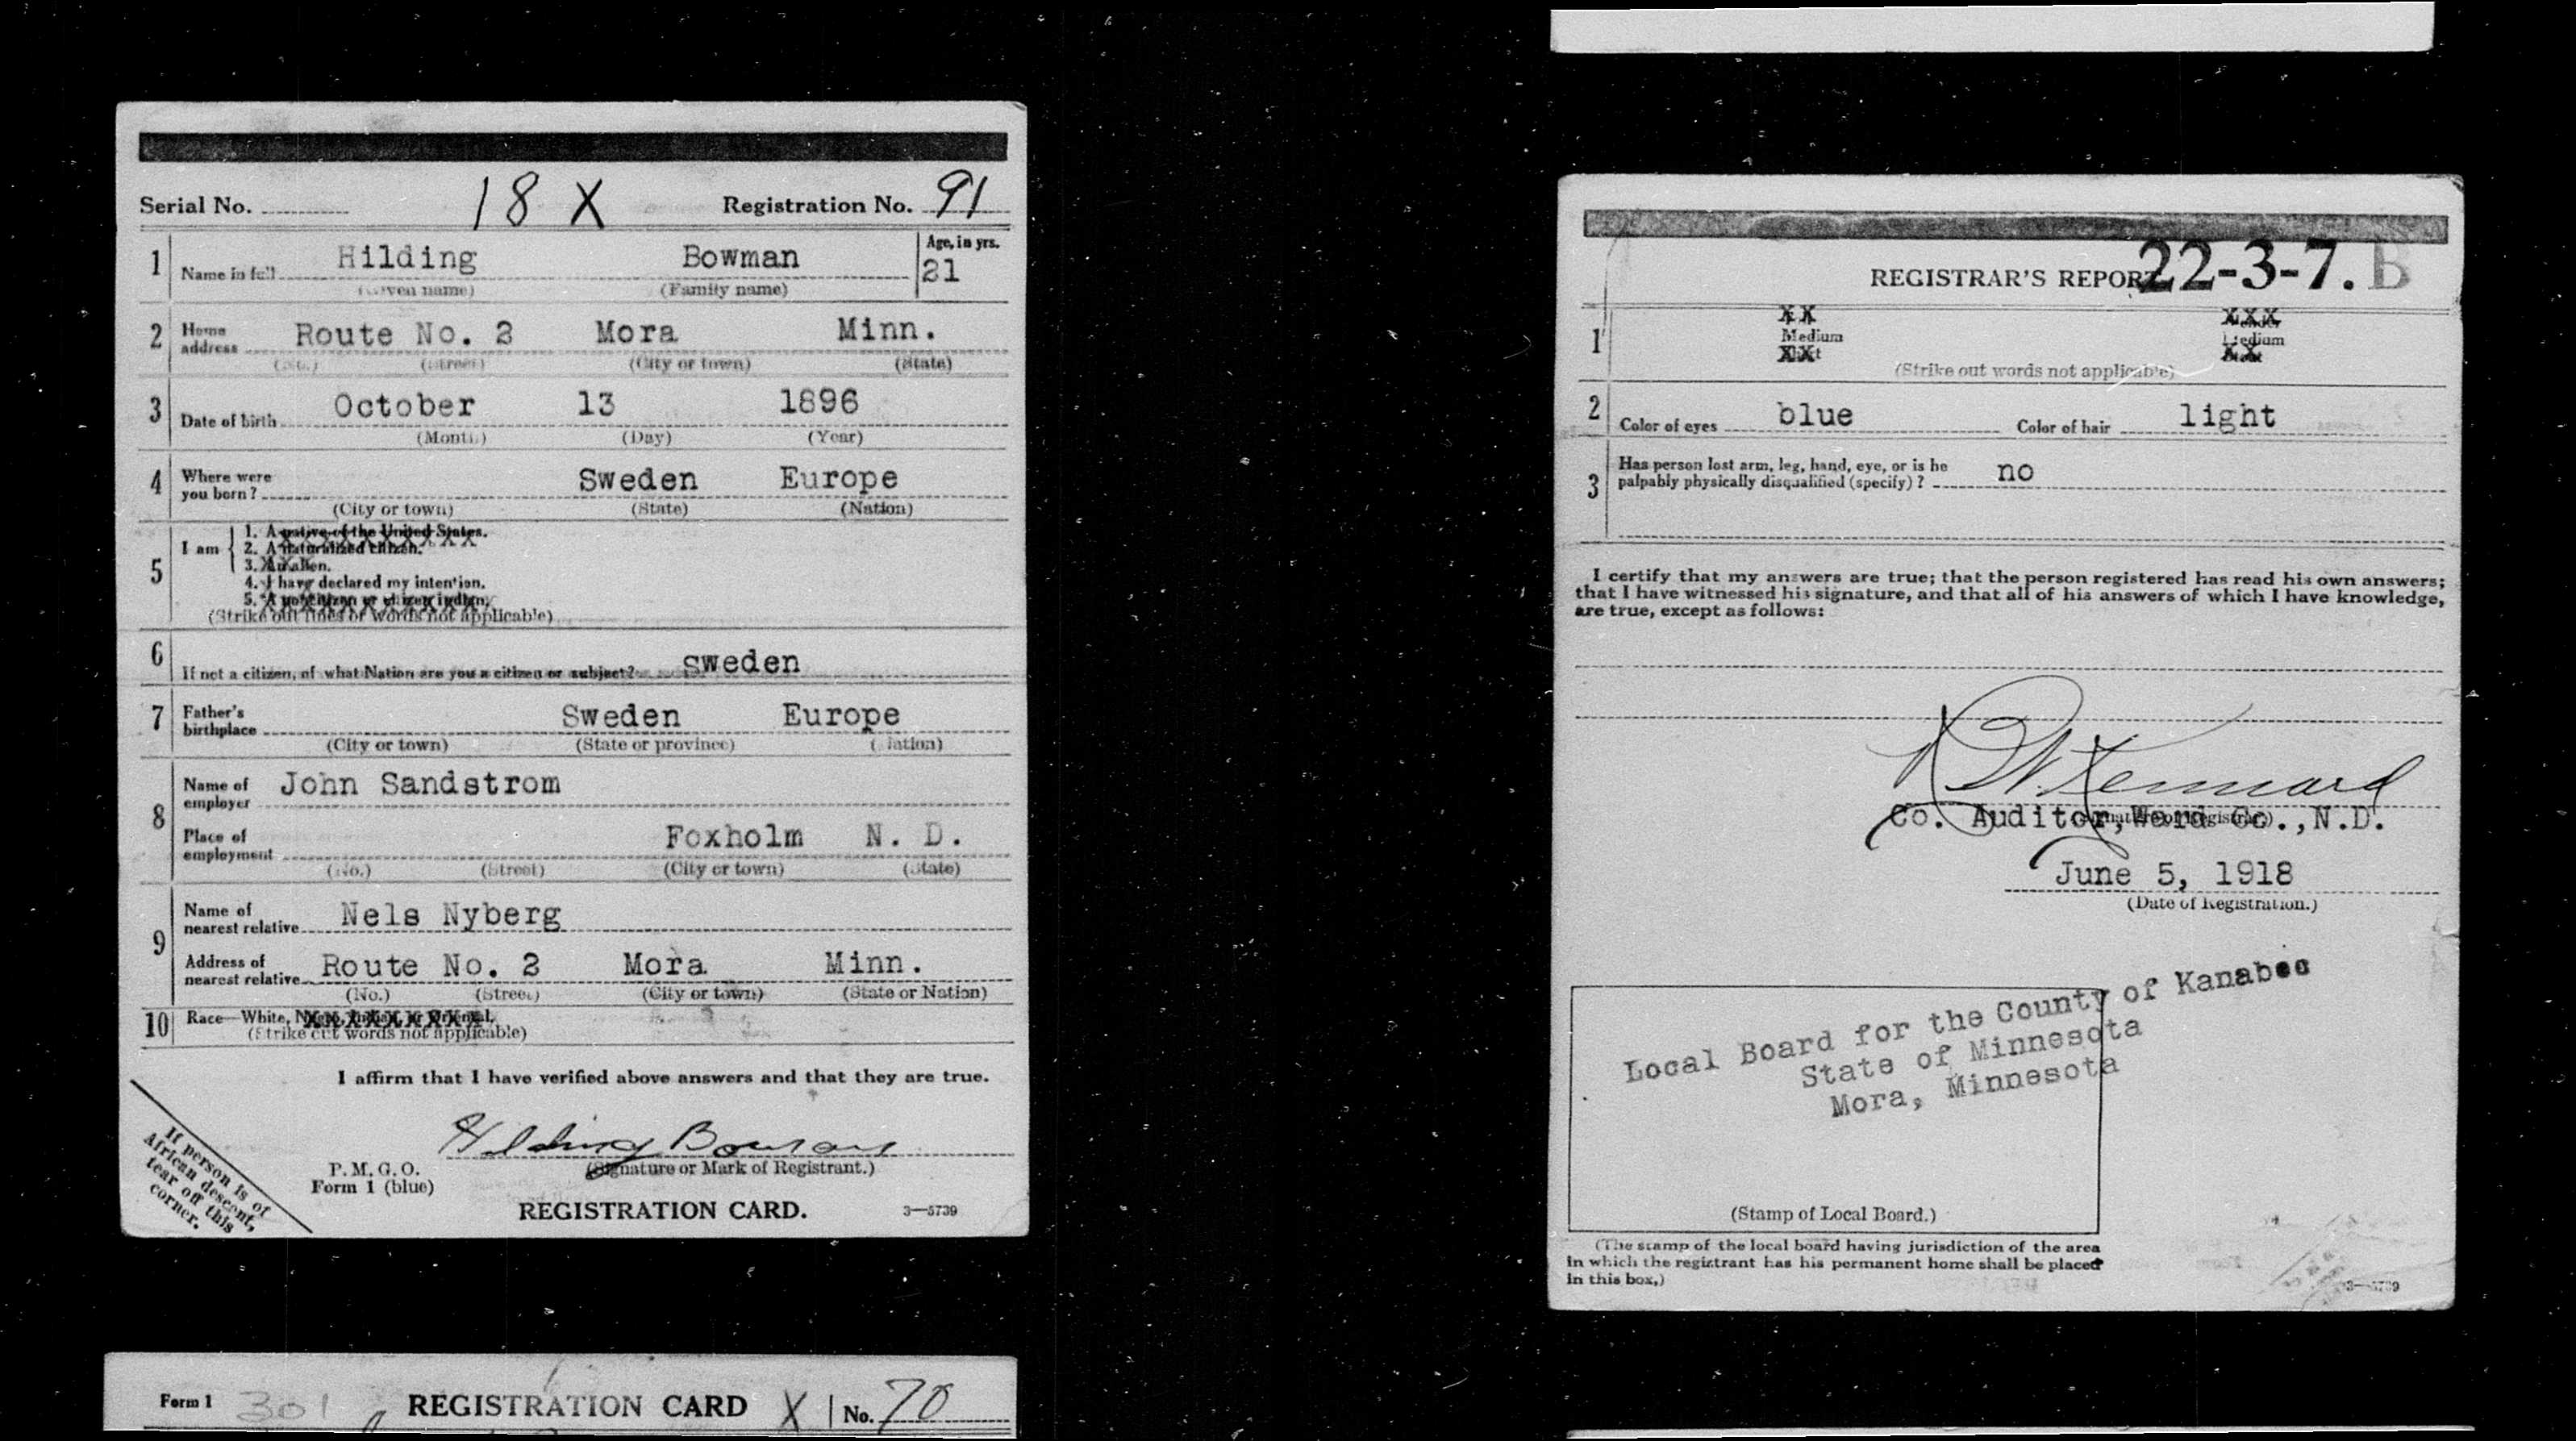 Serial No. 18 X Registration No. 91
1 Name in full Hilding Bowman Age, in yrs. 21
(Given name) (Family name)
2 Home address Route No. 2 Mora Minn.
(No.) (Street) (City or town) (State)
3 Date of birth October 13 1896
(Month) (Day) (Year)
4 Where were you born? Sweden Europe
(City or town) (State) (Nation)
5 I am
1. A native of the United States.
2. A naturalized citizen.
3. An alien.
4. I have declared my intention.
5. A noncitizen or citizen indian.
(Strike out lines or words not applicable)
6 If not a citizen, of what Nation are you a citizen or subject? sweden
7 Father's birthplace Sweden Europe
(City or town) (State or province) (Nation)
8 Name of employer John Sandstrom
Place of employment Foxholm N. D.
(No.) (Street) (City or town) (State)
9 Name of nearest relative Nels Nyberg
Address of nearest relative Route No. 2 Mora Minn.
(No.) (Street) (City or town) (State or Nation)
10 Race—White, Negro, Indian, or Oriental.
(Strike out words not applicable)
I affirm that I have verified above answers and that they are true.
Hilding Bowman
(Signature or Mark of Registrant.)
P. M. G. O.
Form 1 (blue)
REGISTRATION CARD. 3—5739
If person is of
African descent,
tear off this
corner.
Form 1 301 REGISTRATION CARD X No. 70
REGISTRAR'S REPORT 22-3-7. B
1 XX XXX
Medium Medium
XX XX
(Strike out words not applicable)
2 Color of eyes blue Color of hair light
3 Has person lost arm, leg, hand, eye, or is he
palpably physically disqualified (specify)? no
I certify that my answers are true; that the person registered has read his own answers;
that I have witnessed his signature, and that all of his answers of which I have knowledge,
are true, except as follows:
Kennard
(Signature of Registrar)
Co. Auditor, Ward Co., N.D.
June 5, 1918
(Date of Registration.)
Local Board for the County of Kanabec
State of Minnesota
Mora, Minnesota
(Stamp of Local Board.)
(The stamp of the local board having jurisdiction of the area
in which the registrant has his permanent home shall be placed
in this box.)
3—5739